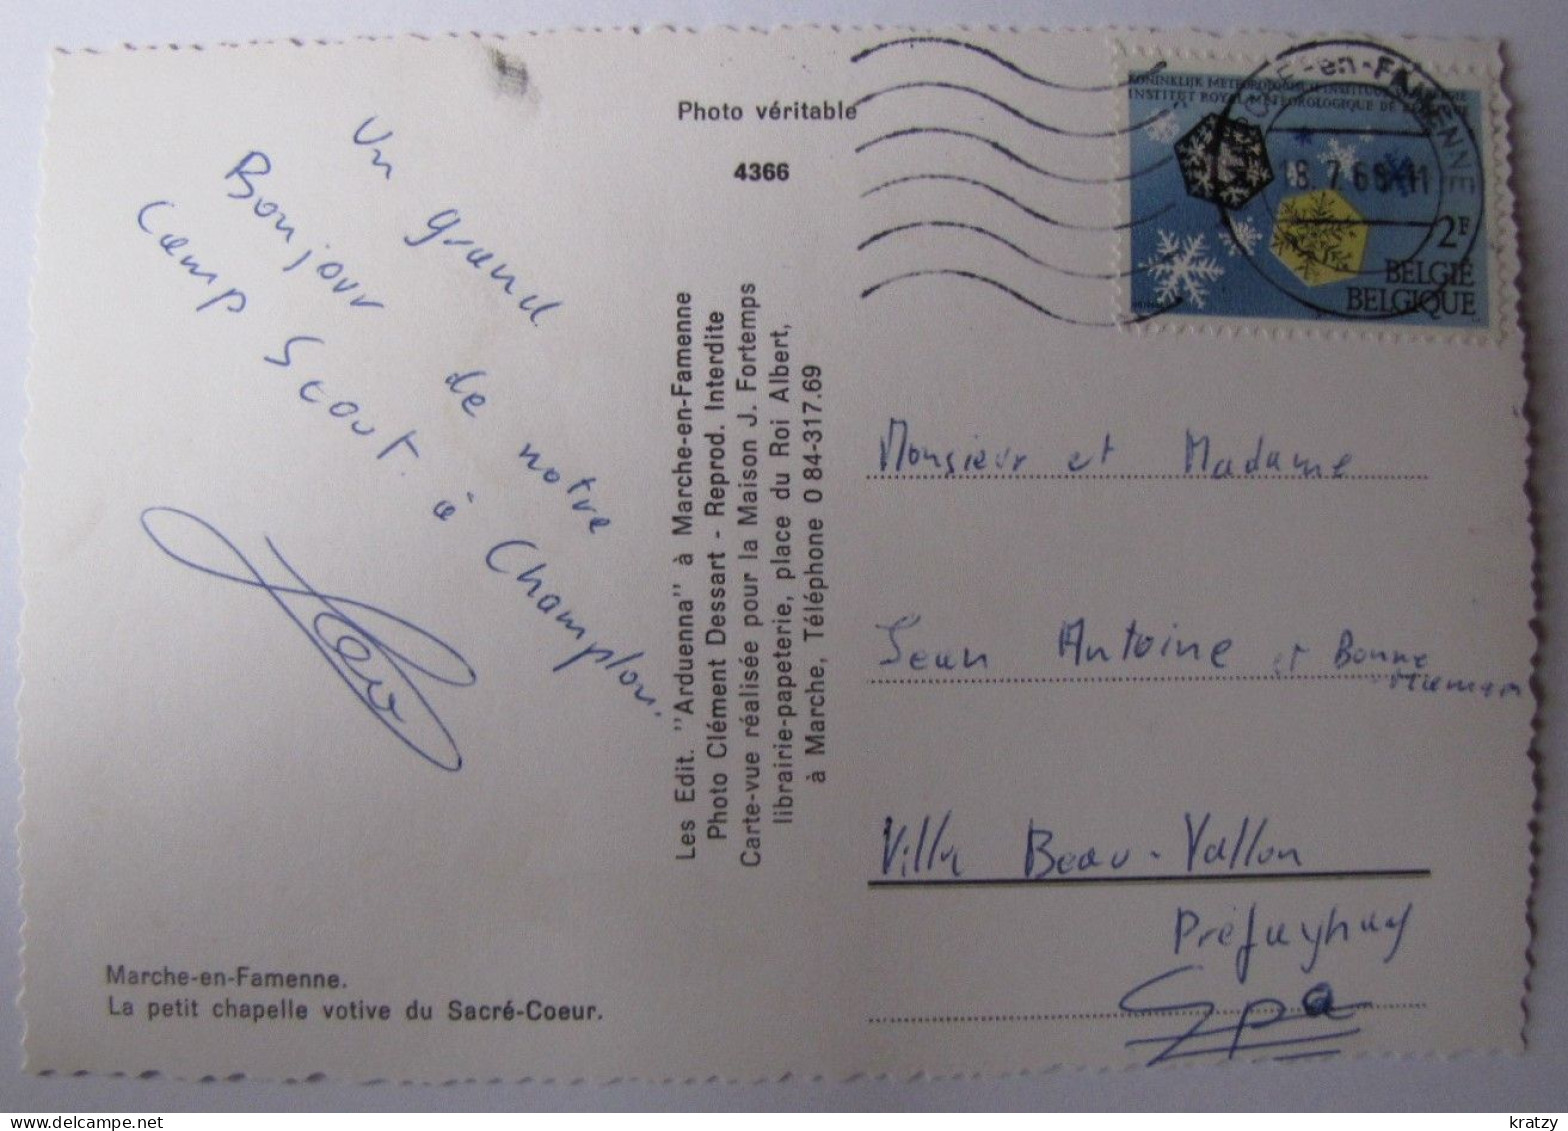 Un grand
Bonjour de notre
Camp Scout à Champlon.
Marche-en-Famenne.
La petit chapelle votive du Sacré-Coeur.
Photo véritable
4366
Les Edit. "Arduenna" à Marche-en-Famenne
Photo Clément Dessart - Reprod. Interdite
Carte-vue réalisée pour la Maison J. Fortemps
librairie-papeterie, place du Roi Albert,
à Marche, Téléphone 0 84-317.69
INSTITUT ROYAL MÉTÉOROLOGIQUE DE
en-FAMENNE
8.7.6 11
2F
BELGIE
BELGIQUE
Monsieur et Madame
Jean Antoine et Bonne
Maman
Villa Beau-Vallon
Préfayhay
Spa
kratzy
delcampe.net